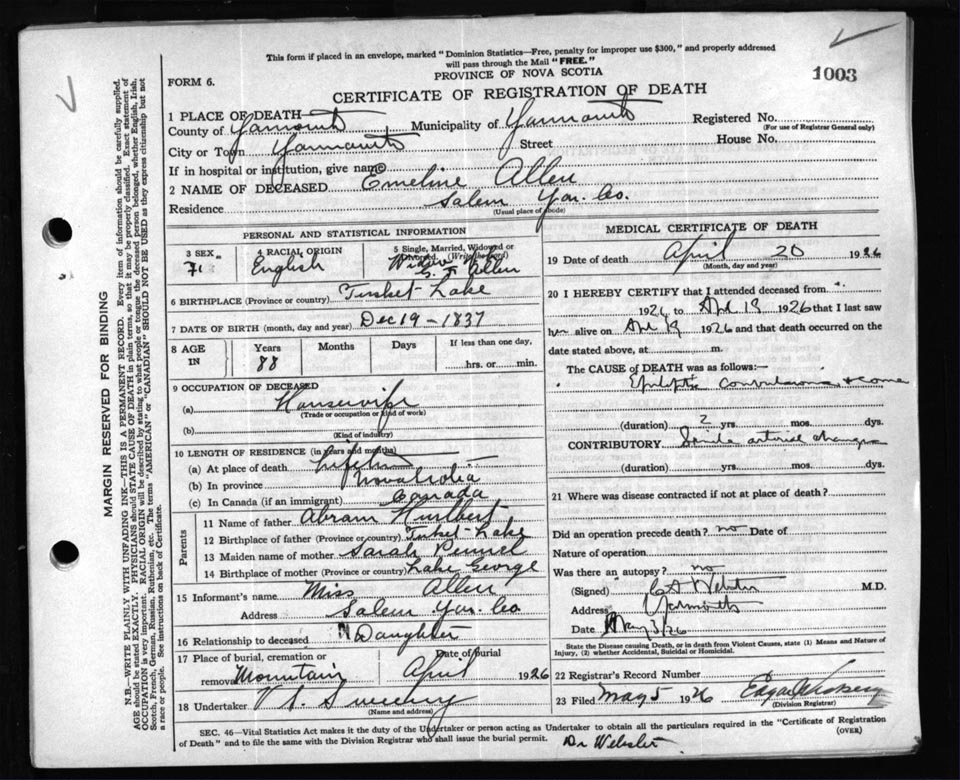 This form if placed in an envelope, marked "Dominion Statistics—Free, penalty for improper use $300," and properly addressed
will pass through the Mail "FREE."
PROVINCE OF NOVA SCOTIA
FORM 6.
1003
CERTIFICATE OF REGISTRATION OF DEATH
1 PLACE OF DEATH
County of Yarmouth Municipality of Yarmouth Registered No.
(For use of Registrar General only)
City or Town Yarmouth Street House No.
If in hospital or institution, give name
2 NAME OF DECEASED Emeline Allen
Residence Salem Yar. Co.
(Usual place of abode)
PERSONAL AND STATISTICAL INFORMATION
3 SEX
4 RACIAL ORIGIN English
5 Single, Married, Widowed or Divorced (Write the word) Widow
Allen
6 BIRTHPLACE (Province or country) Tusket Lake
7 DATE OF BIRTH (month, day and year) Dec 19 - 1837
8 AGE IN Years 88 Months Days If less than one day,
hrs. or min.
9 OCCUPATION OF DECEASED
(a) Housewife
(Trade or occupation or kind of work)
(b)
(Kind of industry)
10 LENGTH OF RESIDENCE (in years and months)
(a) At place of death
(b) In province Nova Scotia
(c) In Canada (if an immigrant) Canada
Parents
11 Name of father Abram Hurlbert
12 Birthplace of father (Province or country) Tusket Lake
13 Maiden name of mother Sarah
14 Birthplace of mother (Province or country) Lake George
15 Informant's name Miss Allen
Address Salem Yar. Co
16 Relationship to deceased Daughter
17 Place of burial, cremation or Date of burial
removal Mountain April 1926
18 Undertaker V. S. Sweeny
(Name and address)
MEDICAL CERTIFICATE OF DEATH
19 Date of Death April 20 1926
(Month, day and year)
20 I HEREBY CERTIFY that I attended deceased from
1926 to Apl 19 1926 that I last saw
her alive on Apl 19 1926 and that death occurred on the
date stated above, at m.
The CAUSE OF DEATH was as follows:—
Epileptic convulsions & coma
(duration) 2 yrs. mos. dys.
CONTRIBUTORY Senile arterial changes
(duration) yrs. mos. dys.
21 Where was disease contracted if not at place of death?
Did an operation precede death? no Date of
Nature of operation
Was there an autopsy? no
(Signed) Webster M.D.
Address Yarmouth
Date May 3/26
State the Disease causing Death, or in death from Violent Causes, state (1) Means and Nature of
Injury, (2) whether Accidental, Suicidal or Homicidal.
22 Registrar's Record Number
23 Filed May 5 1926 Edgar
(Division Registrar)
SEC. 46—Vital Statistics Act makes it the duty of the Undertaker or person acting as Undertaker to obtain all the particulars required in the "Certificate of Registration
of Death" and to file the same with the Division Registrar who shall issue the burial permit.
(OVER)
Dr Webster
MARGIN RESERVED FOR BINDING
N.B.—WRITE PLAINLY WITH UNFADING INK—THIS IS A PERMANENT RECORD. Every item of information should be carefully supplied.
AGE should be stated EXACTLY. PHYSICIANS should STATE CAUSE OF DEATH in plain terms, so that it may be properly classified. Exact statement of
OCCUPATION is very important. RACIAL ORIGIN will be described by stating to what people or tongue the deceased person belonged, whether English, Irish,
Scotch, French, German, Russian, Ruthenian, etc. The terms "AMERICAN" or "CANADIAN" SHOULD NOT BE USED as they express citizenship but not
a race or people. See instructions on back of Certificate.